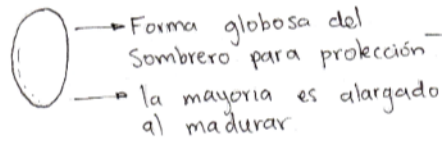 Forma globosa del
Sombrero para protección
la mayoria es alargado
al madurar